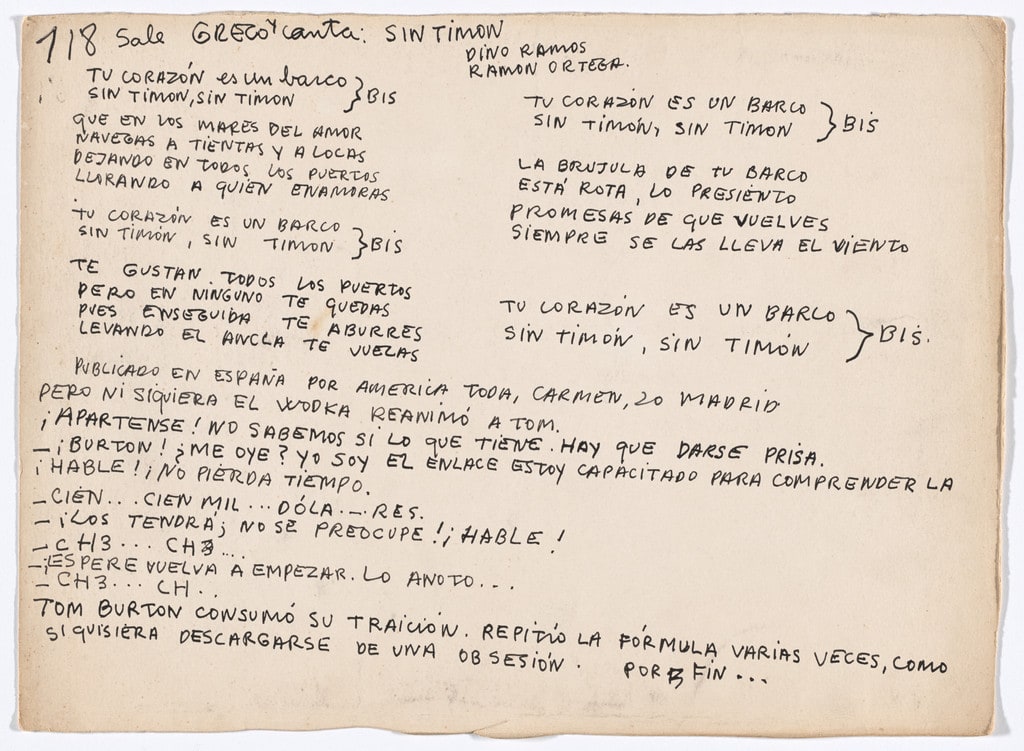 118 Sale GRECO Y canta: SIN TIMON
DINO RAMOS
RAMON ORTEGA.
TU CORAZÓN es un barco
SIN TIMON, SIN TIMON } BIS
QUE EN LOS MARES DEL AMOR
NAVEGAS A TIENTAS Y A LOCAS
DEJANDO EN TODOS LOS PUERTOS
LLORANDO A QUIEN ENAMORAS.
TU CORAZÓN ES UN BARCO
SIN TIMÓN, SIN TIMON } BIS
TE GUSTAN TODOS LOS PUERTOS
PERO EN NINGUNO TE QUEDAS
PUES ENSEGUIDA TE ABURRES
LEVANDO EL ANCLA TE VUELAS
TU CORAZÓN ES UN BARCO
SIN TIMÓN, SIN TIMON } BIS
LA BRUJULA DE TU BARCO
ESTÁ ROTA, LO PRESIENTO
PROMESAS DE QUE VUELVES
SIEMPRE SE LAS LLEVA EL VIENTO
TU CORAZÓN ES UN BARCO
SIN TIMÓN, SIN TIMÓN } BIS.
PUBLICADO EN ESPAÑA POR AMERICA TODA, CARMEN, 20 MADRID
PERO NI SIQUIERA EL WODKA REANIMÓ A TOM.
¡APARTENSE! NO SABEMOS SI LO QUE TIENE. HAY QUE DARSE PRISA.
– ¡BURTON! ¿ME OYE? YO SOY EL ENLACE ESTOY CAPACITADO PARA COMPRENDER LA
¡HABLE! ¡NO PIERDA TIEMPO.
– CIEN... CIEN MIL... DÓLA... RES.
– ¡LOS TENDRÁ; NO SE PREOCUPE! ¡HABLE!
– CH3... CH3....
– ¡ESPERE VUELVA A EMPEZAR. LO ANOTO...
– CH3... CH..
TOM BURTON CONSUMÓ SU TRAICIÓN. REPITIÓ LA FÓRMULA VARIAS VECES, COMO
SI QUISIERA DESCARGARSE DE UNA OBSESIÓN. POR FIN...